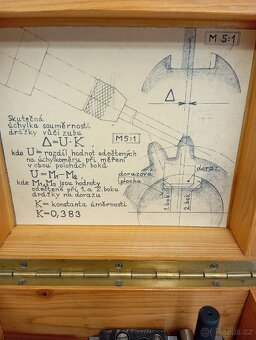 M 5:1
Δ
Skutečná
úchylka souměrnosti
drážky vůči zubu
Δ=U·K
M 5:1
kde U= rozdíl hodnot odečtených
na úchylkoměru při měření
v obou polohách boků
U= M₁-M₂,
kde M₁,M₂ jsou hodnoty
odečtené při 1. a 2. boku
drážky na dorazu
K= konstanta úměrnosti
K=0,383
dorazová
plocha
doraz
1.bok
2.bok
Bazos.cz